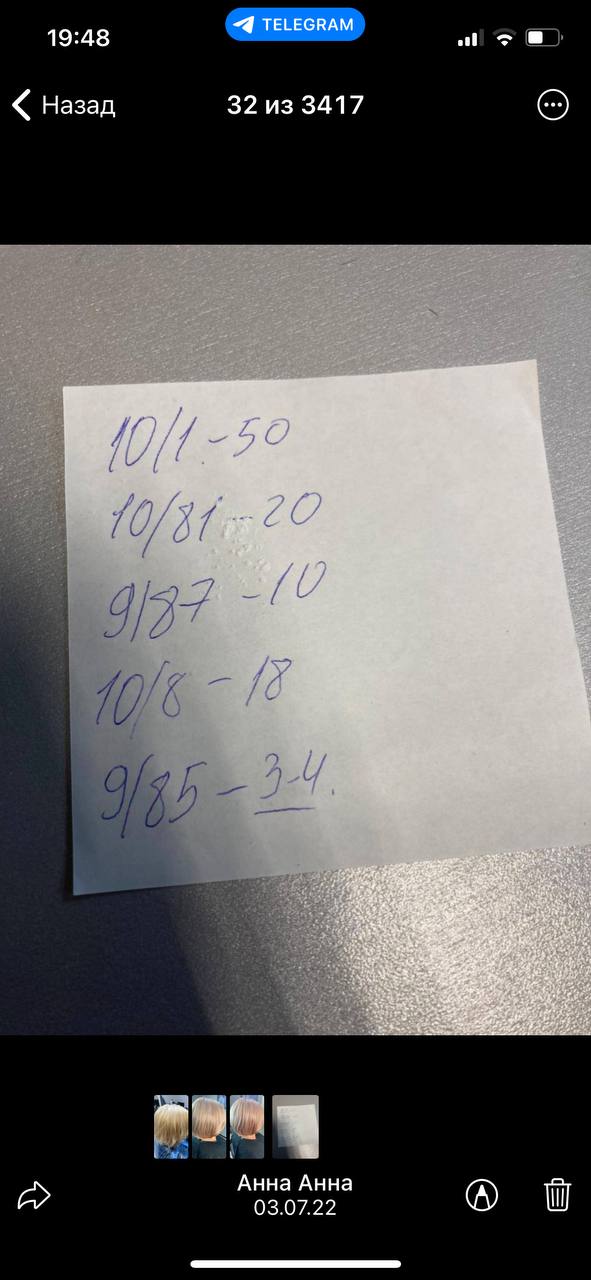 19:48
TELEGRAM
Назад
32 из 3417
10/1 - 50
10/81 - 20
9/87 - 10
10/8 - 18
9/85 - 3-4.
Анна Анна
03.07.22